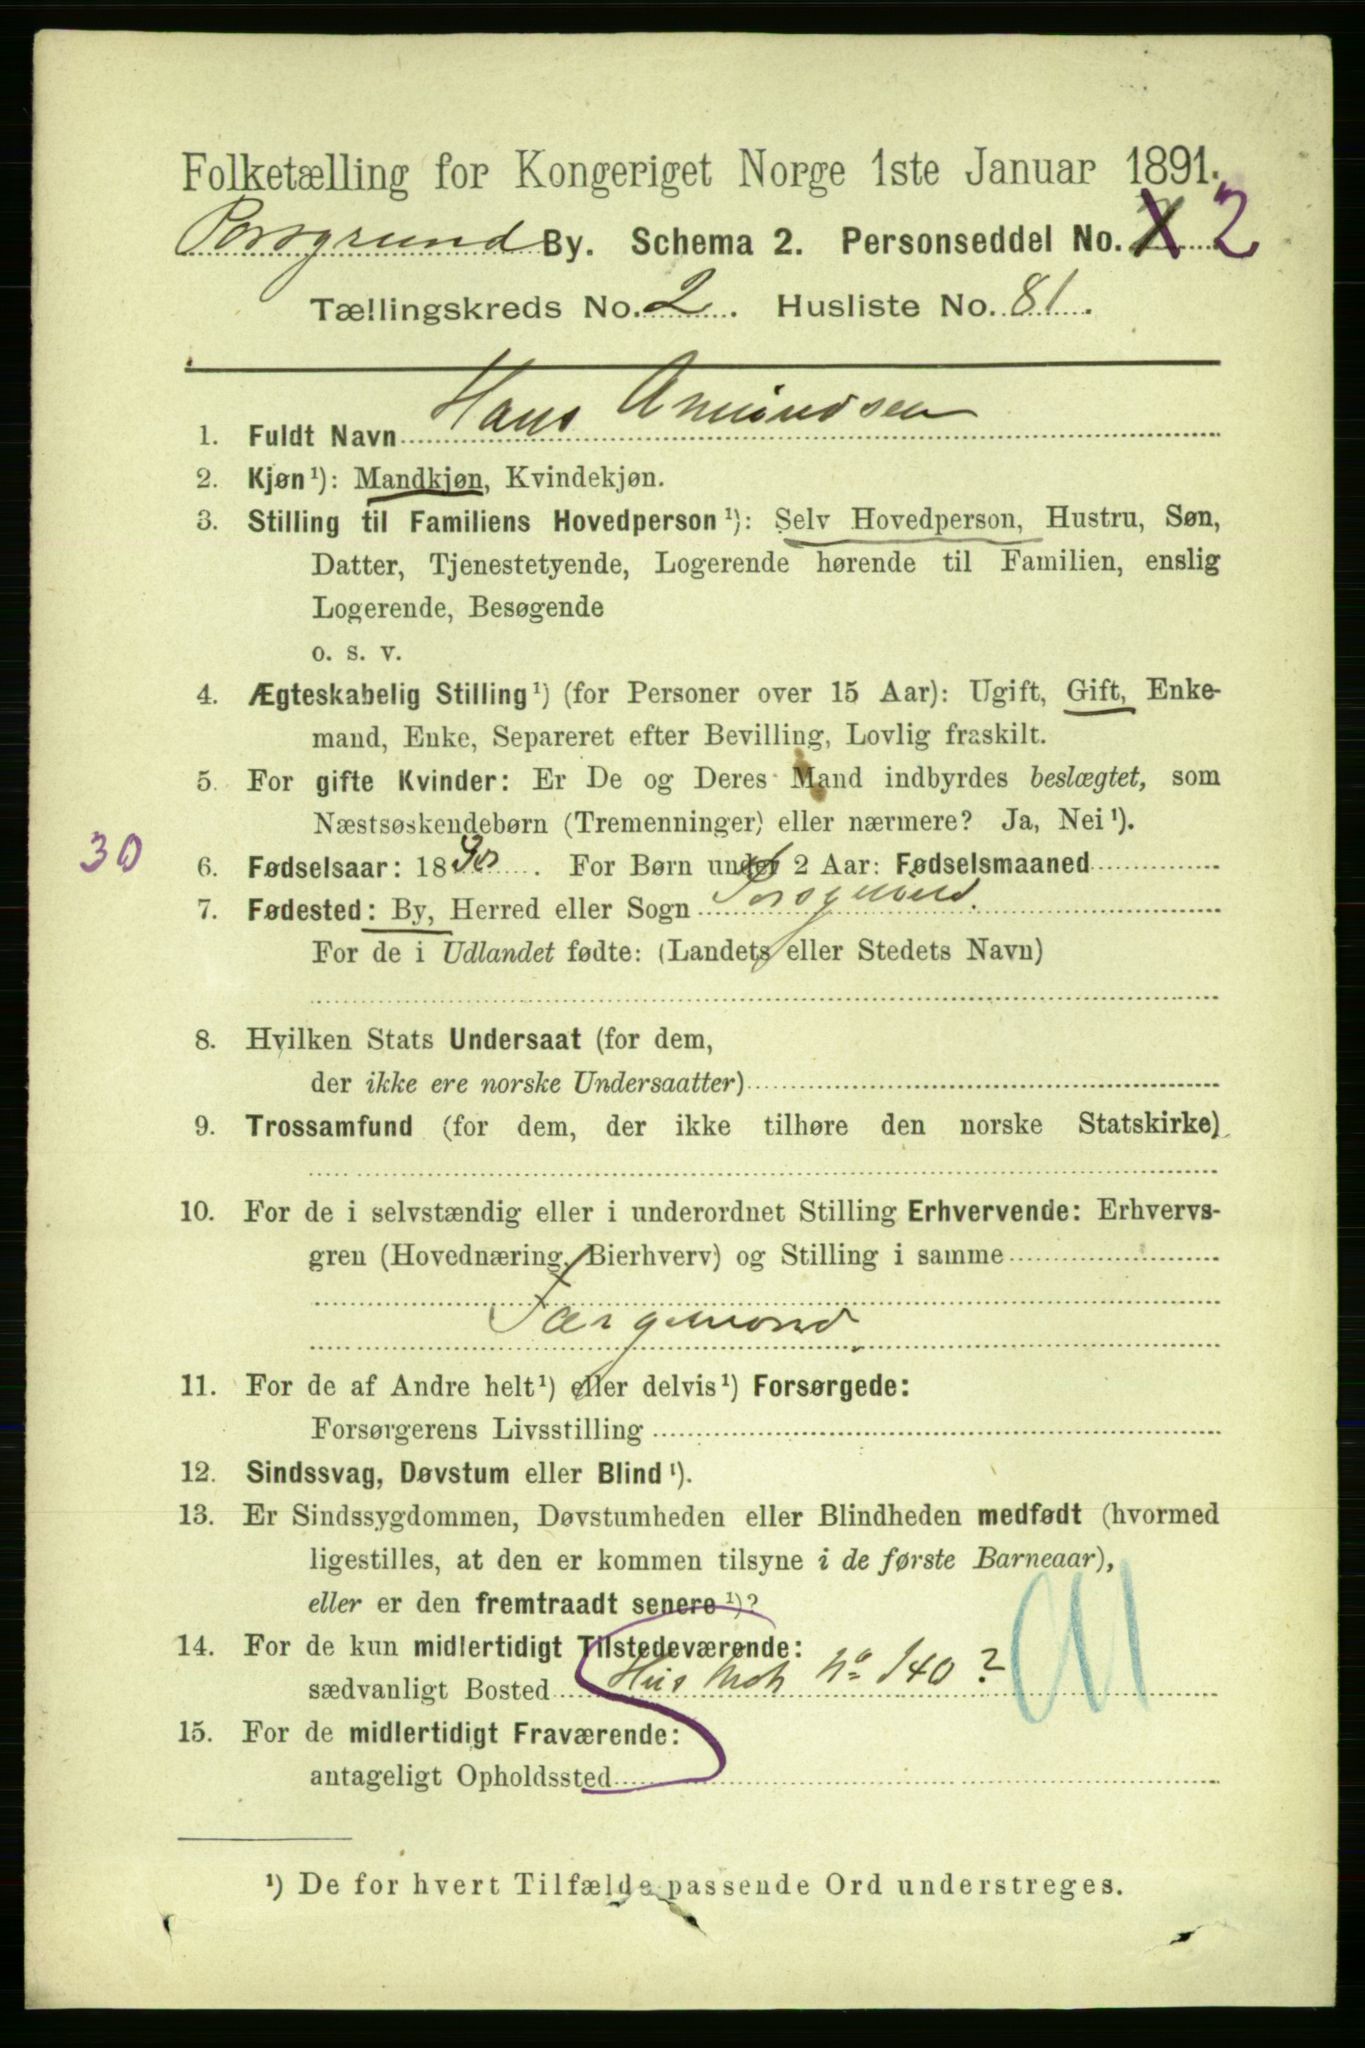 Folketælling for Kongeriget Norge 1ste Januar 1891.
Porsgrund By. Schema 2. Personseddel No. 2
Tællingskreds No. 2. Husliste No. 81.
1. Fuldt Navn Hans Amundsen
2. Kjøn¹): Mandkjøn, Kvindekjøn.
3. Stilling til Familiens Hovedperson¹): Selv Hovedperson, Hustru, Søn,
Datter, Tjenestetyende, Logerende hørende til Familien, enslig
Logerende, Besøgende
o. s. v.
4. Ægteskabelig Stilling¹) (for Personer over 15 Aar): Ugift, Gift, Enke-
mand, Enke, Separeret efter Bevilling, Lovlig fraskilt.
5. For gifte Kvinder: Er De og Deres Mand indbyrdes beslægtet, som
Næstsøskendebørn (Tremenninger) eller nærmere? Ja, Nei¹).
30
6. Fødselsaar: 18 . For Børn under 2 Aar: Fødselsmaaned
7. Fødested: By, Herred eller Sogn Porsgrund.
For de i Udlandet fødte: (Landets eller Stedets Navn)
8. Hvilken Stats Undersaat (for dem,
der ikke ere norske Undersaatter)
9. Trossamfund (for dem, der ikke tilhøre den norske Statskirke)
10. For de i selvstændig eller i underordnet Stilling Erhvervende: Erhvervs-
gren (Hovednæring, Bierhverv) og Stilling i samme
Færgemand
11. For de af Andre helt¹) eller delvis¹) Forsørgede:
Forsørgerens Livsstilling
12. Sindssvag, Døvstum eller Blind¹).
13. Er Sindssygdommen, Døvstumheden eller Blindheden medfødt (hvormed
ligestilles, at den er kommen tilsyne i de første Barneaar),
eller er den fremtraadt senere¹)?
14. For de kun midlertidigt Tilstedeværende:
sædvanligt Bosted Hus Nº 140?
15. For de midlertidigt Fraværende:
antageligt Opholdssted
¹) De for hvert Tilfælde passende Ord understreges.